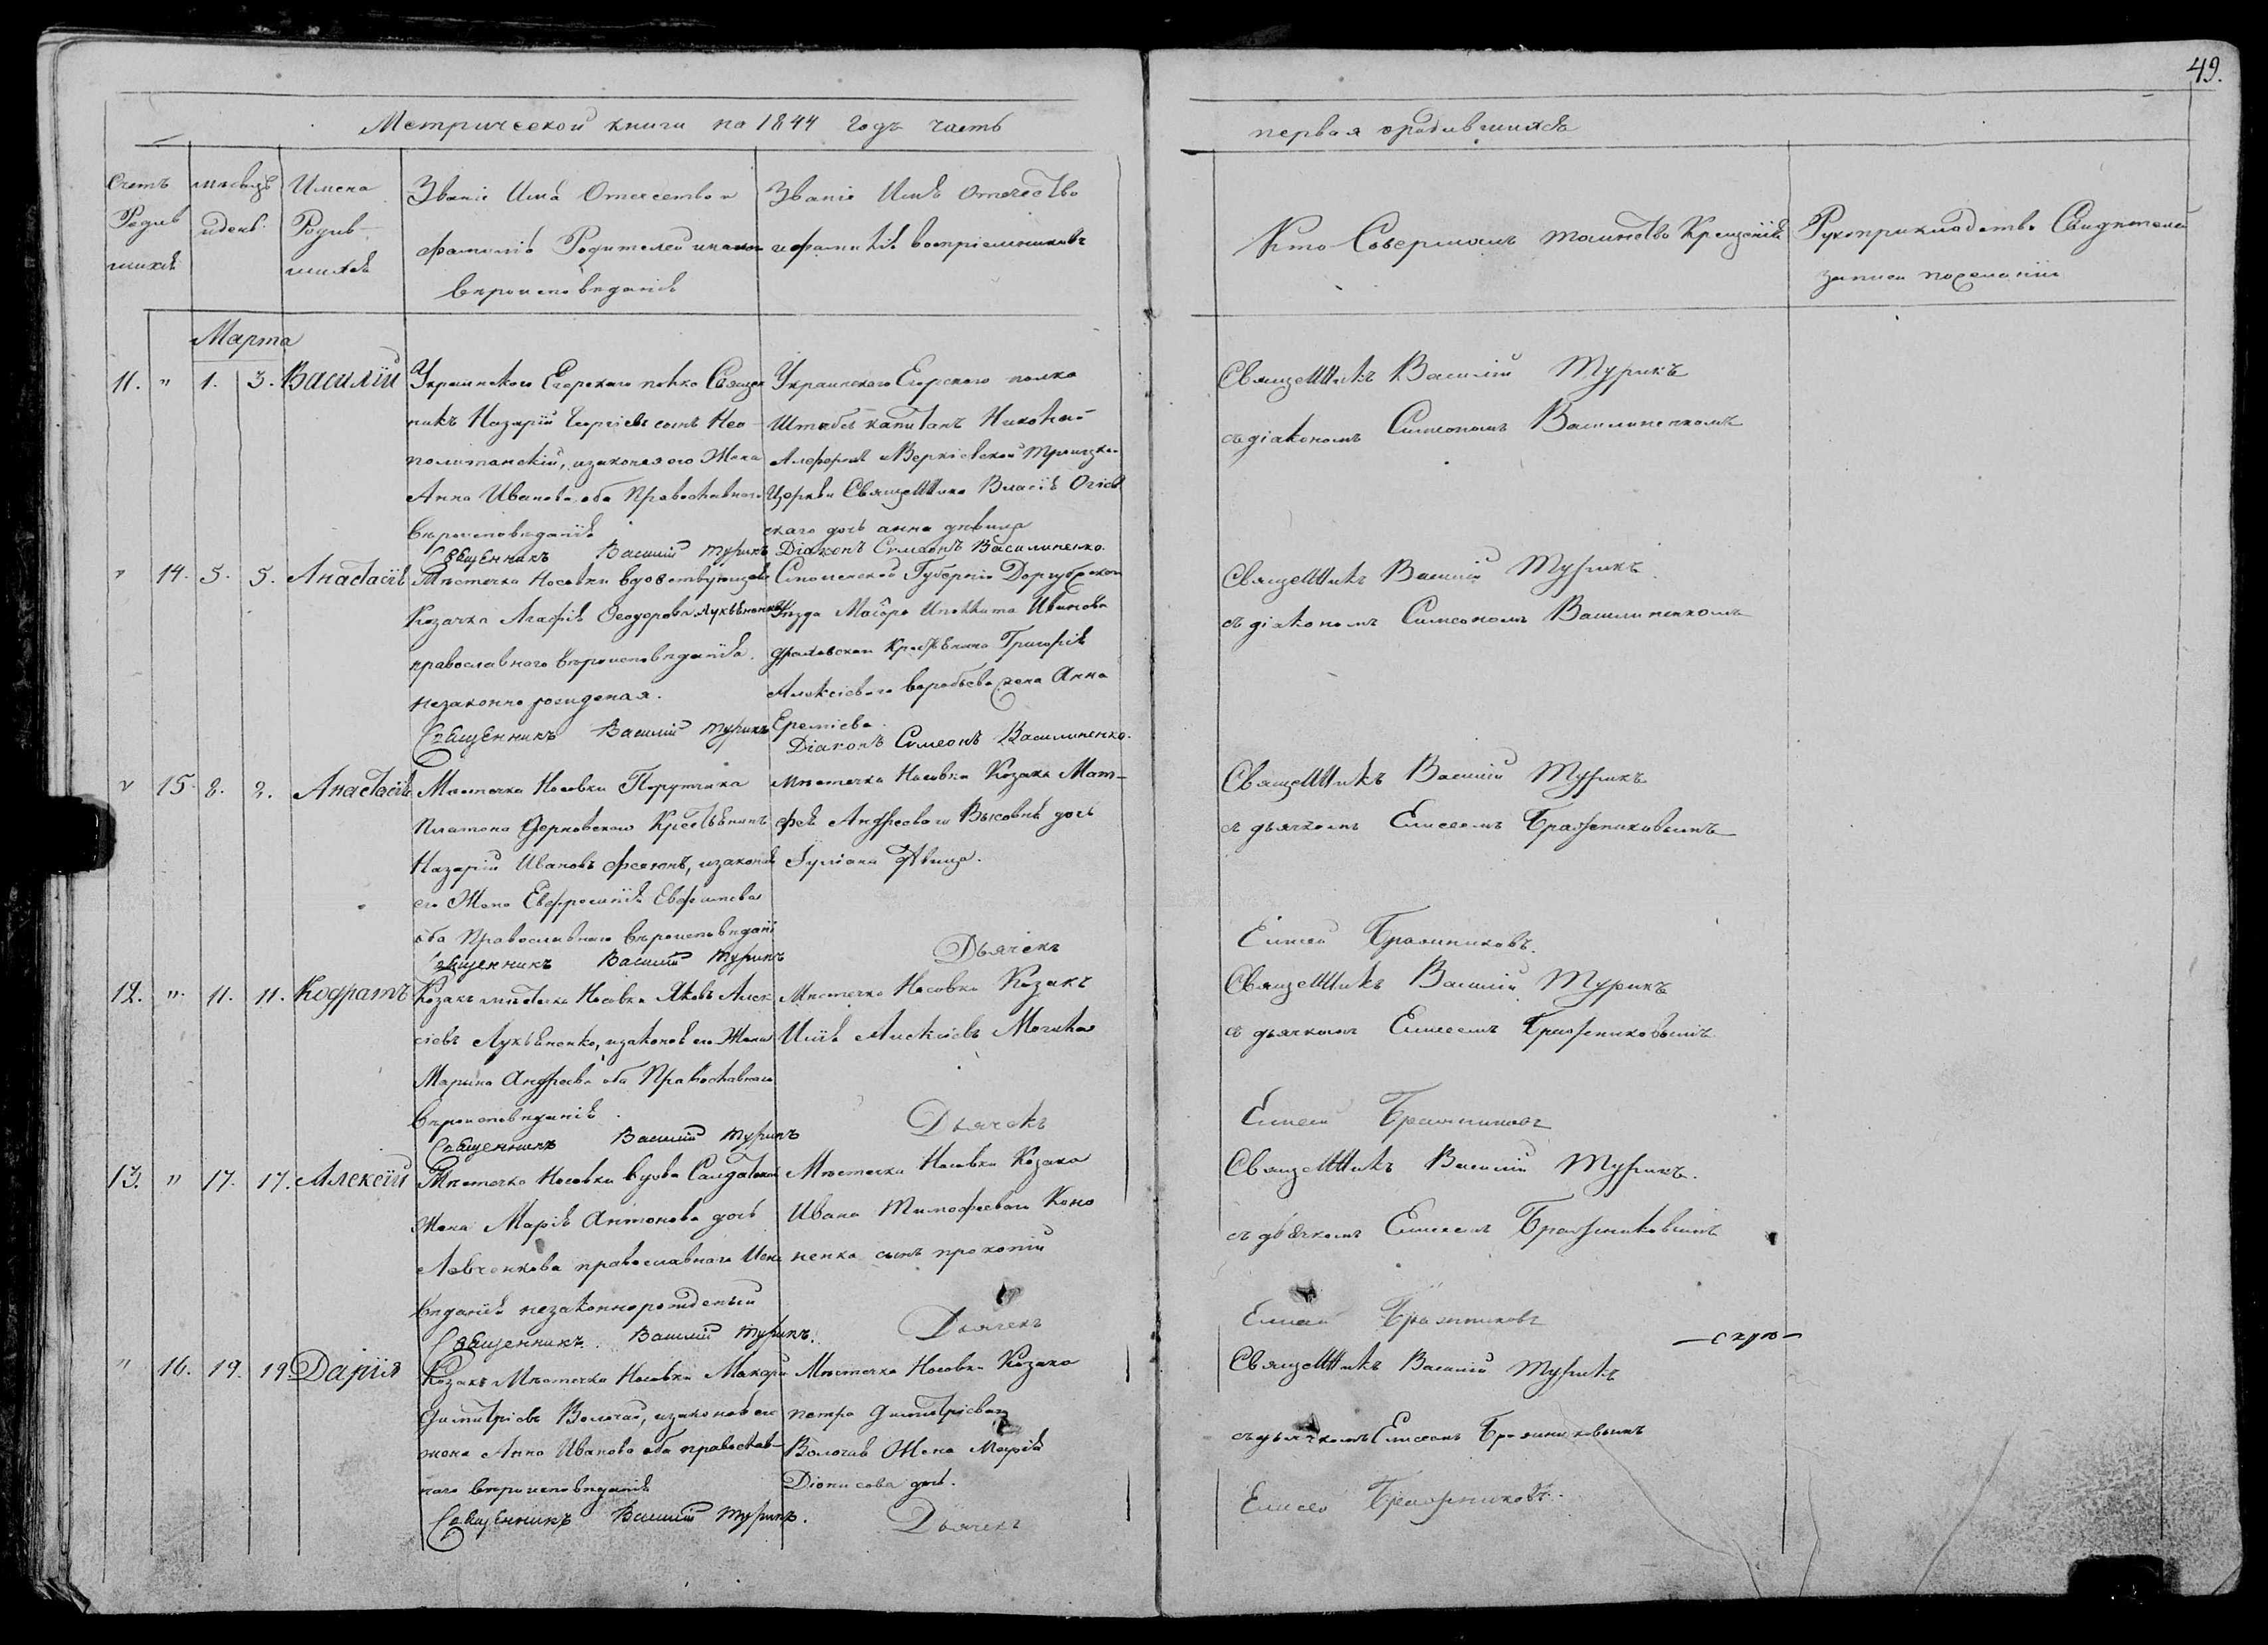 49.
Метрической книги на 1844 годъ часть
первая о родившихся
Счетъ Родив шихся
мѣсяцъ и день
Имена Родив- шихся
Званіе Имя Отчество и
фамилія Родителей и какого
вѣроисповѣданія
Званіе Имя Отчество
и фамилія воспріемниковъ
Кто Совершалъ таинство Крещенія
Рукоприкладство Свидѣтелей
записи по желанію
Марта
11. " 1. 3. Василій
Украинскаго Егерскаго полка Священ
никъ Назарій Георгіевъ сынъ Нео-
политанскій, и законная его Жена
Анна Иванова оба Православнаго
вѣроисповѣданія
Священникъ Василій Турикъ
Украинскаго Егерского полка
Штабсъ капитанъ Николай
Церкви Священика Власія Огіев
скаго дочь анна дѣвица
Діаконъ Симеонъ Василиненко.
Священикъ Василій Турикъ
съ діакономъ Симеономъ Василиненкомъ
" 14. 5. 5. Анастасія
Мѣстечка Носовки вдовствующая
Козачка Агафія Феодорова Лукьяненкова
православнаго вѣроисповѣданія.
незаконно рожденая.
Священникъ Василій Турикъ
Смоленской Губерніи Дорогубской
Уѣзда Маіора Иполита Иванова
крестьянина Григорія
Алексіеваго Воробьева жена Анна
Еремиева.
Діаконъ Симеонъ Василиненко.
Священикъ Василій Турикъ.
съ діакономъ Симеономъ Василиненкомъ
" 15. 8. 2. Анастасія
Мѣстечка Носовки Порутчика
Платона Дерновскаго Крестьянинъ
Назарій Ивановъ Феснъ, и законая
его Жена Евфросинія Евфимиева
оба Православнаго вѣроисповѣдані
Священникъ Василій Турикъ
мѣстечка Носовки Козака Мат-
фея Андреевого Высовня дочь
Іуліана Дѣвица.
Дьячекъ
Священикъ Василій Турикъ
съ дьячкомъ Елисеемъ Бражниковымъ
Елисей Бражниковъ.
12. " 11. 11. Кодратъ
Козакъ мѣстечка Носовки Яковъ Алек
сіевъ Лукьяненко, и законая его Жена
Марина Андреева оба Православнаго
вѣроисповѣданія.
Священникъ Василій Турикъ
Мѣстечка Носовки Козакъ
Илія Алексіевъ Могила
Дьячекъ
Священикъ Василій Турикъ
съ дьячкомъ Елисеемъ Бражниковымъ
Елисей Бражниковъ
13. " 17. 17. Алексій
Мѣстечка Носовки вдова Салдатская
жена Марія Антонова дочь
Левченкова православнаго Испо
вѣданія незаконнорожденый
Священникъ Василій Турикъ.
Мѣстечка Носовки Козака
Ивана Тимофеевого Коно
ненка сынъ прокопій
Дьячекъ
Священикъ Василій Турикъ.
съ дьячкомъ Елисеемъ Бражниковымъ
Елисей Бражниковъ
" 16. 19. 19. Дарія
Козакъ Мѣстечка Носовки Макарій
Димитріевъ Волочай, и законная его
жена Анна Иванова оба православ-
наго вѣроисповѣданія
Священникъ Василій Турикъ.
Мѣстечка Носовки Козака
петра Димитріеваго
Волочая Жена Марія
Діонисова дочь.
Дьячекъ
Священикъ Василій Турикъ
съ дьячкомъ Елисеемъ Бражниковымъ
Елисей Бражниковъ.